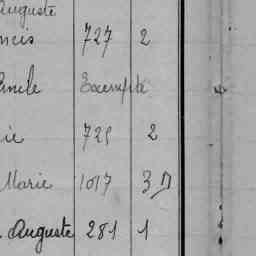 Auguste
ncis 727 2
Emile Exempté
ie 725 2
Marie 1017 3
Auguste 281 1